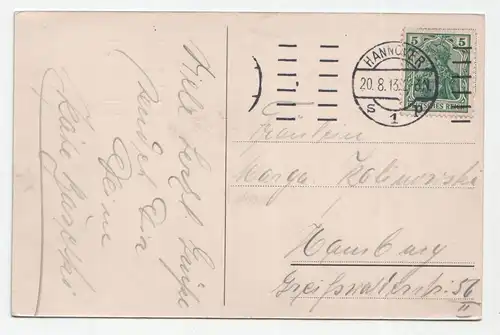 Viele herzl. Grüße
sendet Dir
Deine
HANNOVER
20.8.13.
S 1 b
5 5
DEUTSCHES REICH
Fräulein
Marga Kalinowski
Hamburg
Greifswalderstr. 56
II